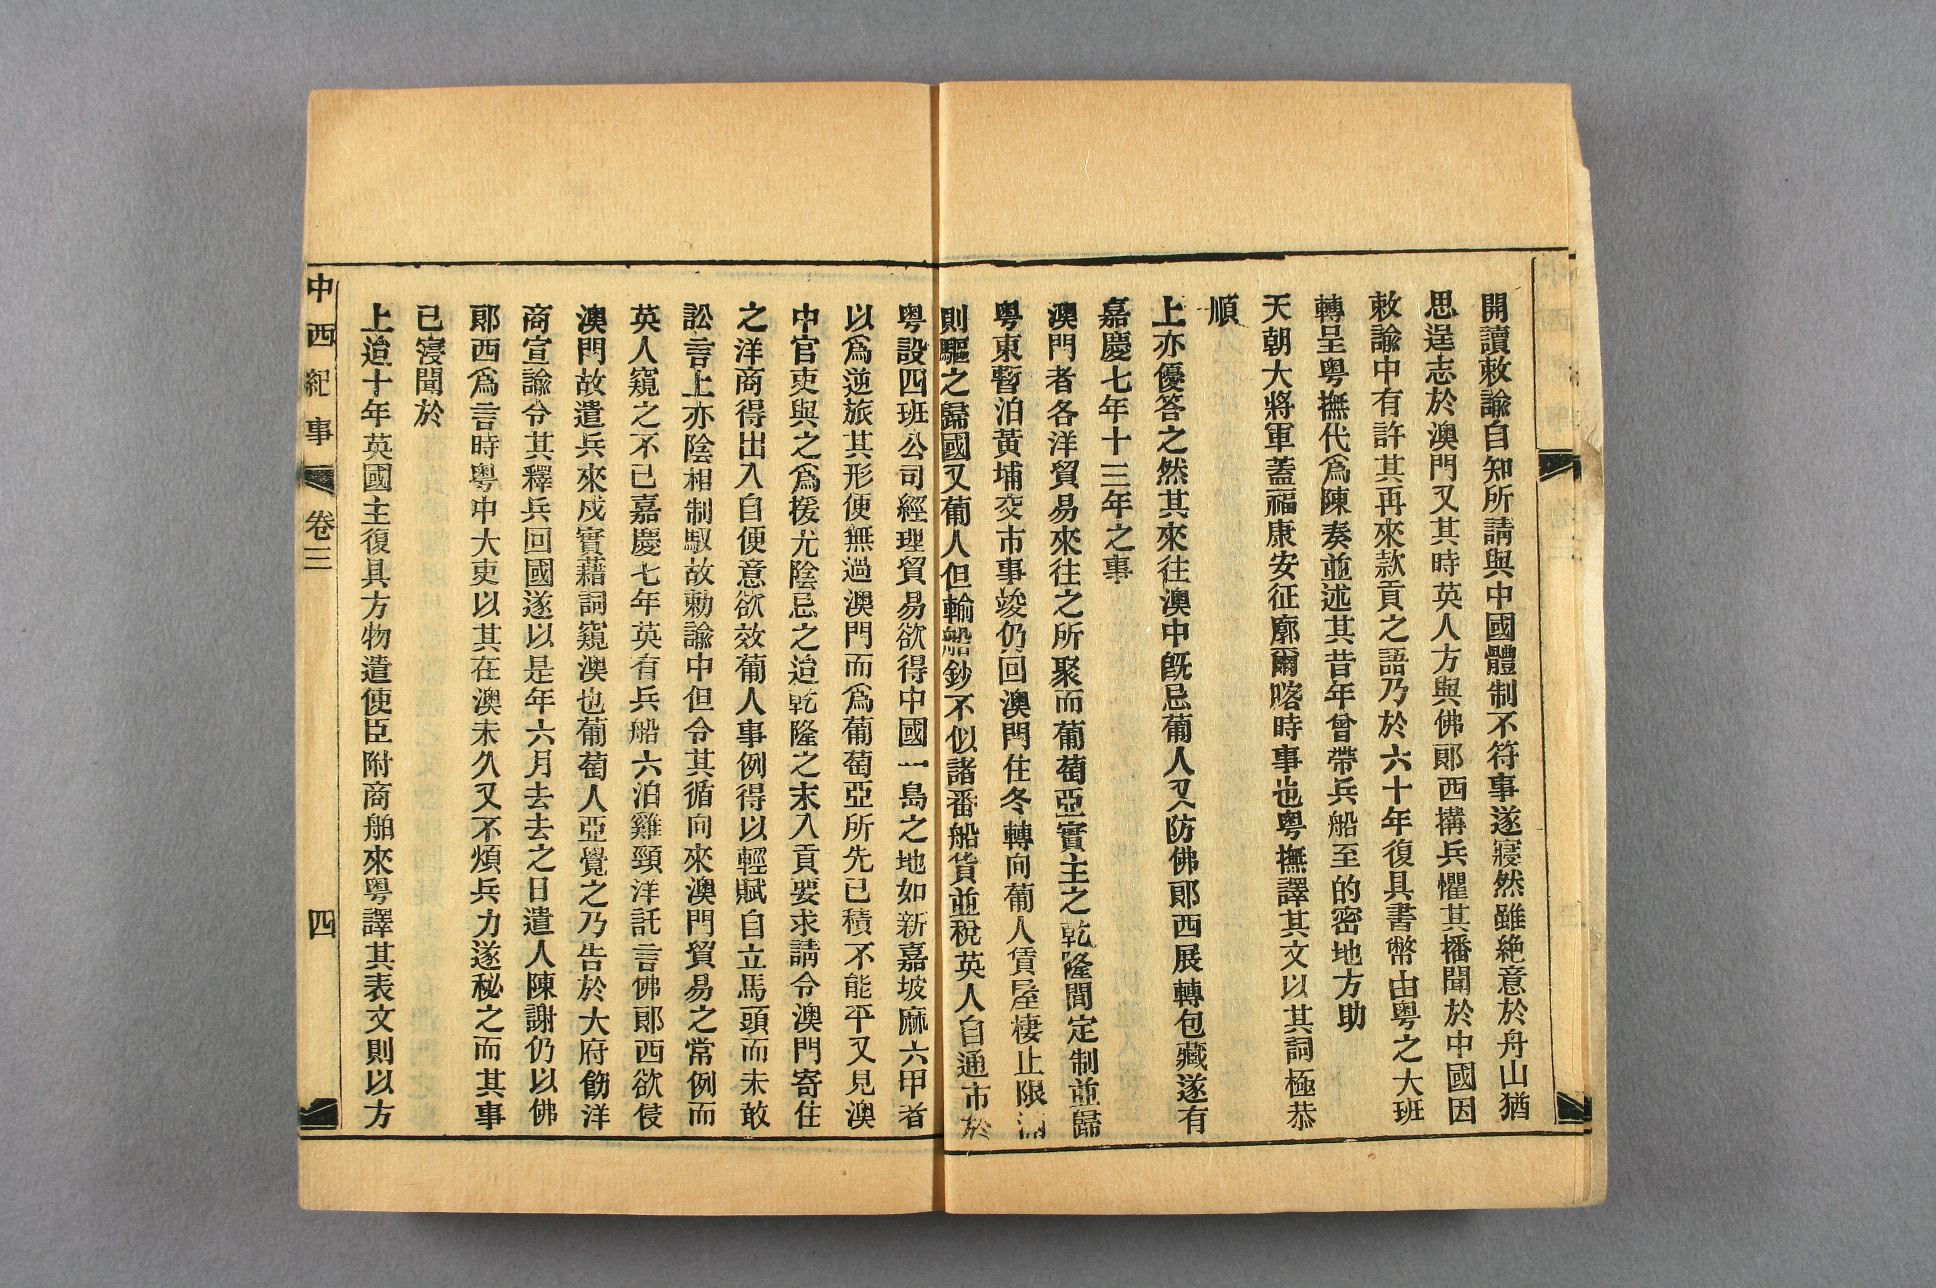 開讀敕諭自知所請與中國體制不符事遂寢然雖絶意於舟山猶
思逞志於澳門又其時英人方與佛郎西搆兵懼其播聞於中國因
敕諭中有許其再來款貢之語乃於六十年復具書幣由粵之大班
轉呈粵撫代爲陳奏並述其昔年曾帶兵船至的密地方助
天朝大將軍蓋福康安征廓爾喀時事也粵撫譯其文以其詞極恭
順
上亦優答之然其來往澳中旣忌葡人又防佛郎西展轉包藏遂有
嘉慶七年十三年之事
澳門者各洋貿易來往之所聚而葡萄亞實主之乾隆間定制並歸
粵東暫泊黃埔交市事竣仍回澳門住冬轉向葡人賃屋棲止限滿
則驅之歸國又葡人但輸船鈔不似諸番船貨並稅英人自通市於
粵設四班公司經理貿易欲得中國一島之地如新嘉坡麻六甲者
以爲逆旅其形便無過澳門而爲葡萄亞所先已積不能平又見澳
中官吏與之爲援尤陰忌之迨乾隆之末入貢要求請令澳門寄住
之洋商得出入自便意欲效葡人事例得以輕賦自立馬頭而未敢
訟言上亦陰相制馭故勅諭中但令其循向來澳門貿易之常例而
英人窺之不已嘉慶七年英有兵船六泊雞頸洋託言佛郎西欲侵
澳門故遣兵來戍實藉詞窺澳也葡萄人亞覺之乃告於大府飭洋
商宣諭令其釋兵回國遂以是年六月去去之日遣人陳謝仍以佛
郎西爲言時粵中大吏以其在澳未久又不煩兵力遂秘之而其事
已寖聞於
上迨十年英國主復具方物遣使臣附商舶來粵譯其表文則以方
中西紀事 卷三 四